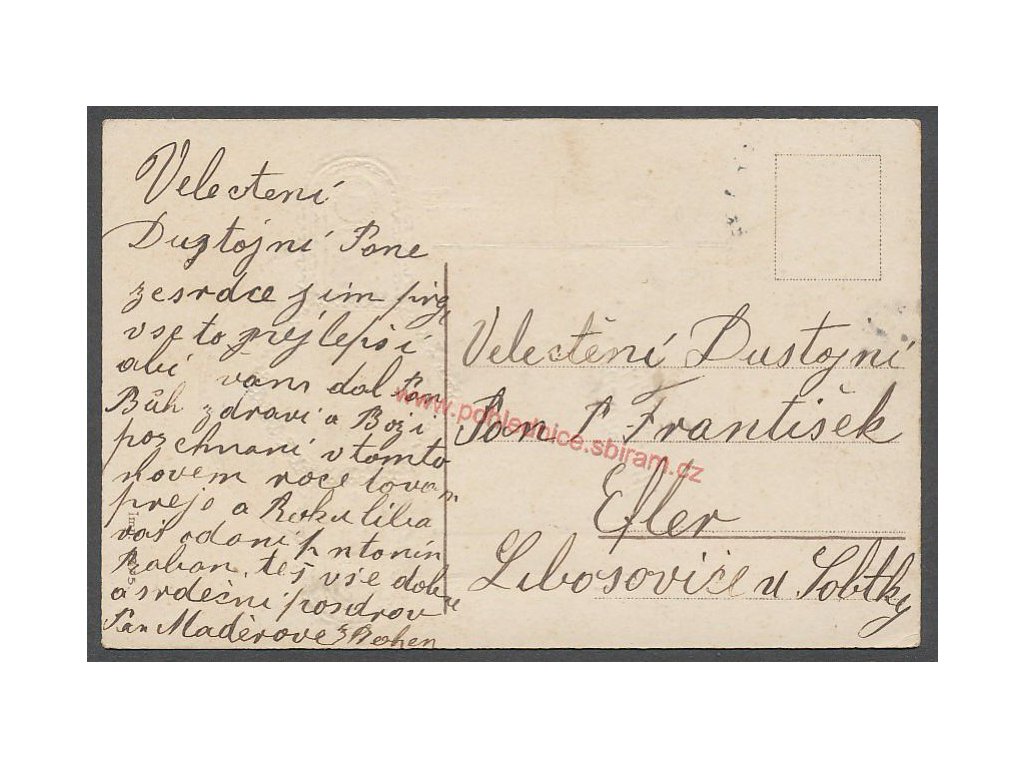 Velectení
Dustojní Pane
ze srdce jim přeji
vseto nejlepší
abi vám dal Pan
Bůh zdraví a Boží
pozehnaní v tomto
novem roce to vam
preje a Ruku líba
oddaní Antonín
Raban. též vše dobre
a srdèční pozdrov
Pan Madèrove z Rohen
Velectění Dustojní
Pan P František
Efler
Libosovice u Sobtky
www.pohlednice.sbiram.cz